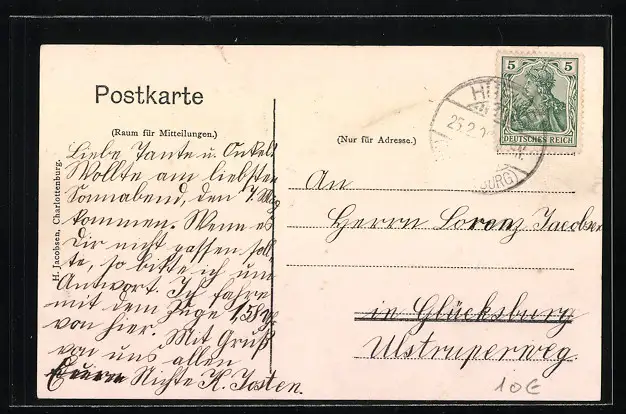 Postkarte
(Raum für Mitteilungen.)
Liebe Tante u. Onkel.
Wollte am liebsten
Sonnabend, den 7. Mg
kommen. Wenn es
Dir nicht passen soll-
te, so bitte ich um
Antwort. Ich fahre
mit dem Zuge 1.58
von hier. Mit Gruß
von uns allen
Eure Nichte K. Josten.
H. Jacobsen, Charlottenburg.
5 5
DEUTSCHES REICH
25.2.
BURG)
(Nur für Adresse.)
An
Herrn Lorenz Jacobsen
in Glücksburg
Ulstruperweg.
10€